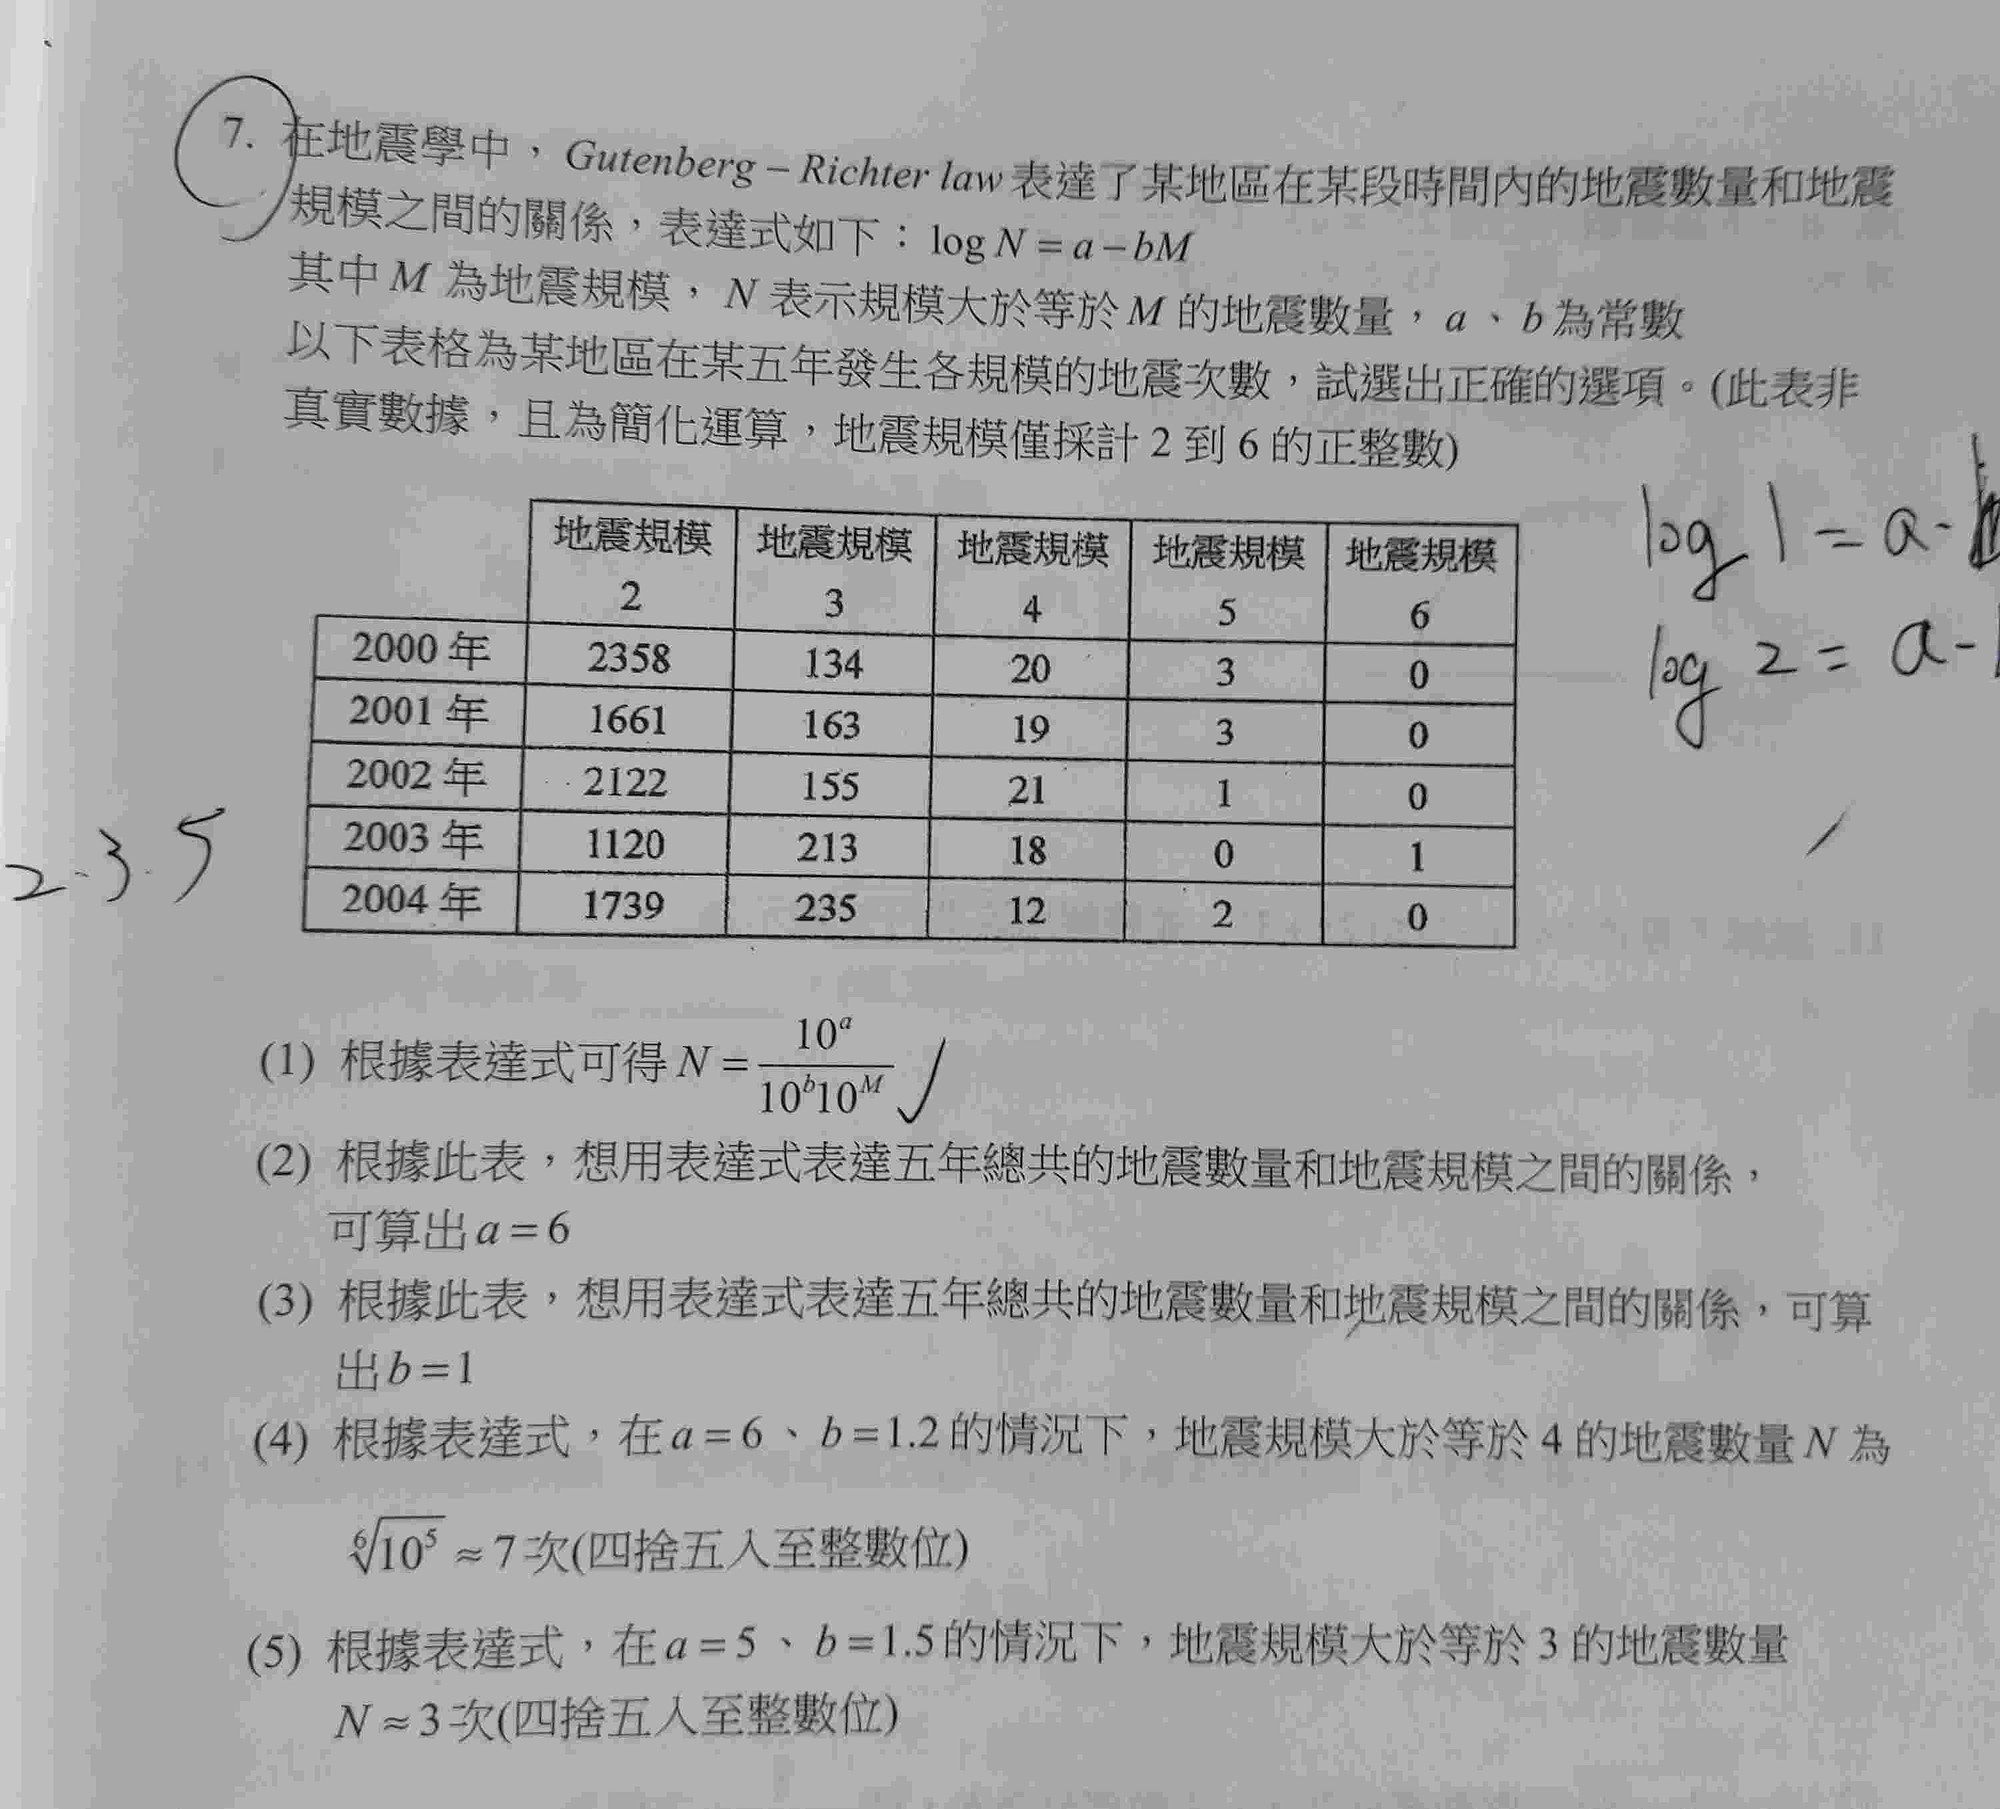 7. 在地震學中，Gutenberg – Richter law 表達了某地區在某段時間內的地震數量和地震
規模之間的關係，表達式如下：log N = a – bM
其中 M 為地震規模， N 表示規模大於等於 M 的地震數量，a、b 為常數
以下表格為某地區在某五年發生各規模的地震次數，試選出正確的選項。(此表非
真實數據，且為簡化運算，地震規模僅採計 2 到 6 的正整數)
地震規模 2 地震規模 3 地震規模 4 地震規模 5 地震規模 6
2000 年 2358 134 20 3 0
2001 年 1661 163 19 3 0
2002 年 2122 155 21 1 0
2003 年 1120 213 18 0 1
2004 年 1739 235 12 2 0
log 1 = a -
log 2 = a -
2.3.5
(1) 根據表達式可得 N = 10^a / 10^b 10^M
(2) 根據此表，想用表達式表達五年總共的地震數量和地震規模之間的關係，
可算出 a = 6
(3) 根據此表，想用表達式表達五年總共的地震數量和地震規模之間的關係，可算
出 b = 1
(4) 根據表達式，在 a = 6、b = 1.2 的情況下，地震規模大於等於 4 的地震數量 N 為
⁶√10⁵ ≈ 7 次(四捨五入至整數位)
(5) 根據表達式，在 a = 5、b = 1.5 的情況下，地震規模大於等於 3 的地震數量
N ≈ 3 次(四捨五入至整數位)